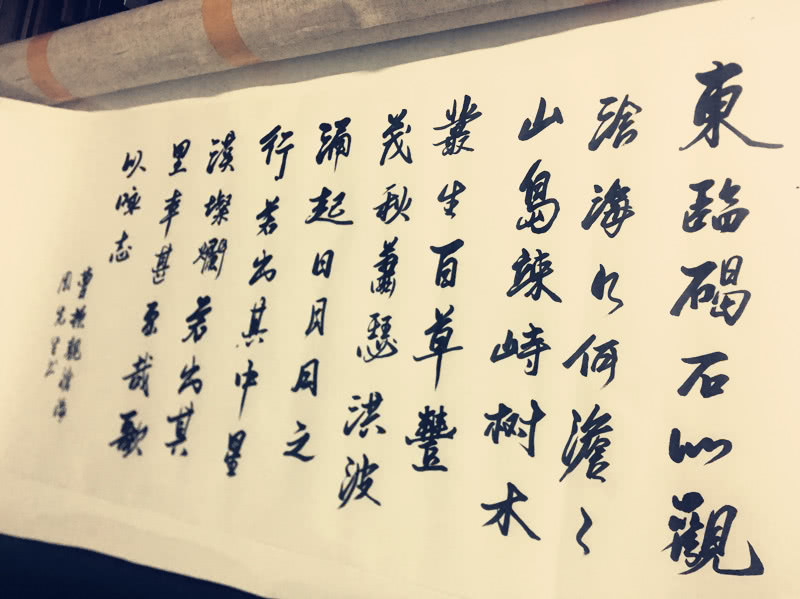 東臨碣石以觀
滄海水何澹〻
山島竦峙树木
叢生百草豐
茂秋蕭瑟洪波
涌起日月之
行若出其中星
漢燦爛若出其
里幸甚至哉歌
以咏志
曹操觀滄海
周先生